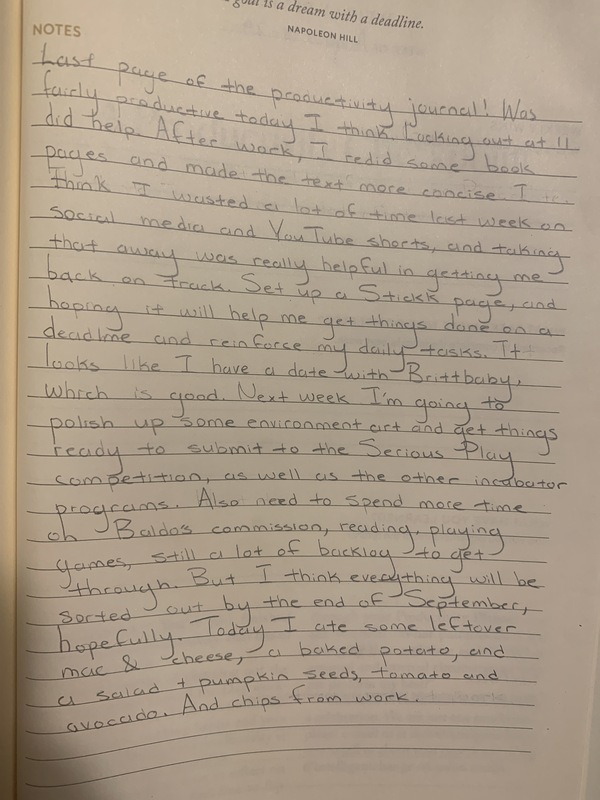 goal is a dream with a deadline.
NAPOLEON HILL
NOTES
Last page of the productivity journal! Was
fairly productive today I think. Locking out at 11
did help. After work, I redid some book
pages and made the text more concise. I
think I wasted a lot of time last week on
social media and YouTube shorts, and taking
that away was really helpful in getting me
back on track. Set up a Stickk page, and
hoping it will help me get things done on a
deadline and reinforce my daily tasks. It
looks like I have a date with Brittbaby,
which is good. Next week I'm going to
polish up some environment art and get things
ready to submit to the Serious Play
competition, as well as the other incubator
programs. Also need to spend more time
on Baldo's commission, reading, playing
games, still a lot of backlog to get
through. But I think everything will be
sorted out by the end of September,
hopefully. Today I ate some leftover
mac & cheese, a baked potato, and
a salad + pumpkin seeds, tomato and
avocado. And chips from work.